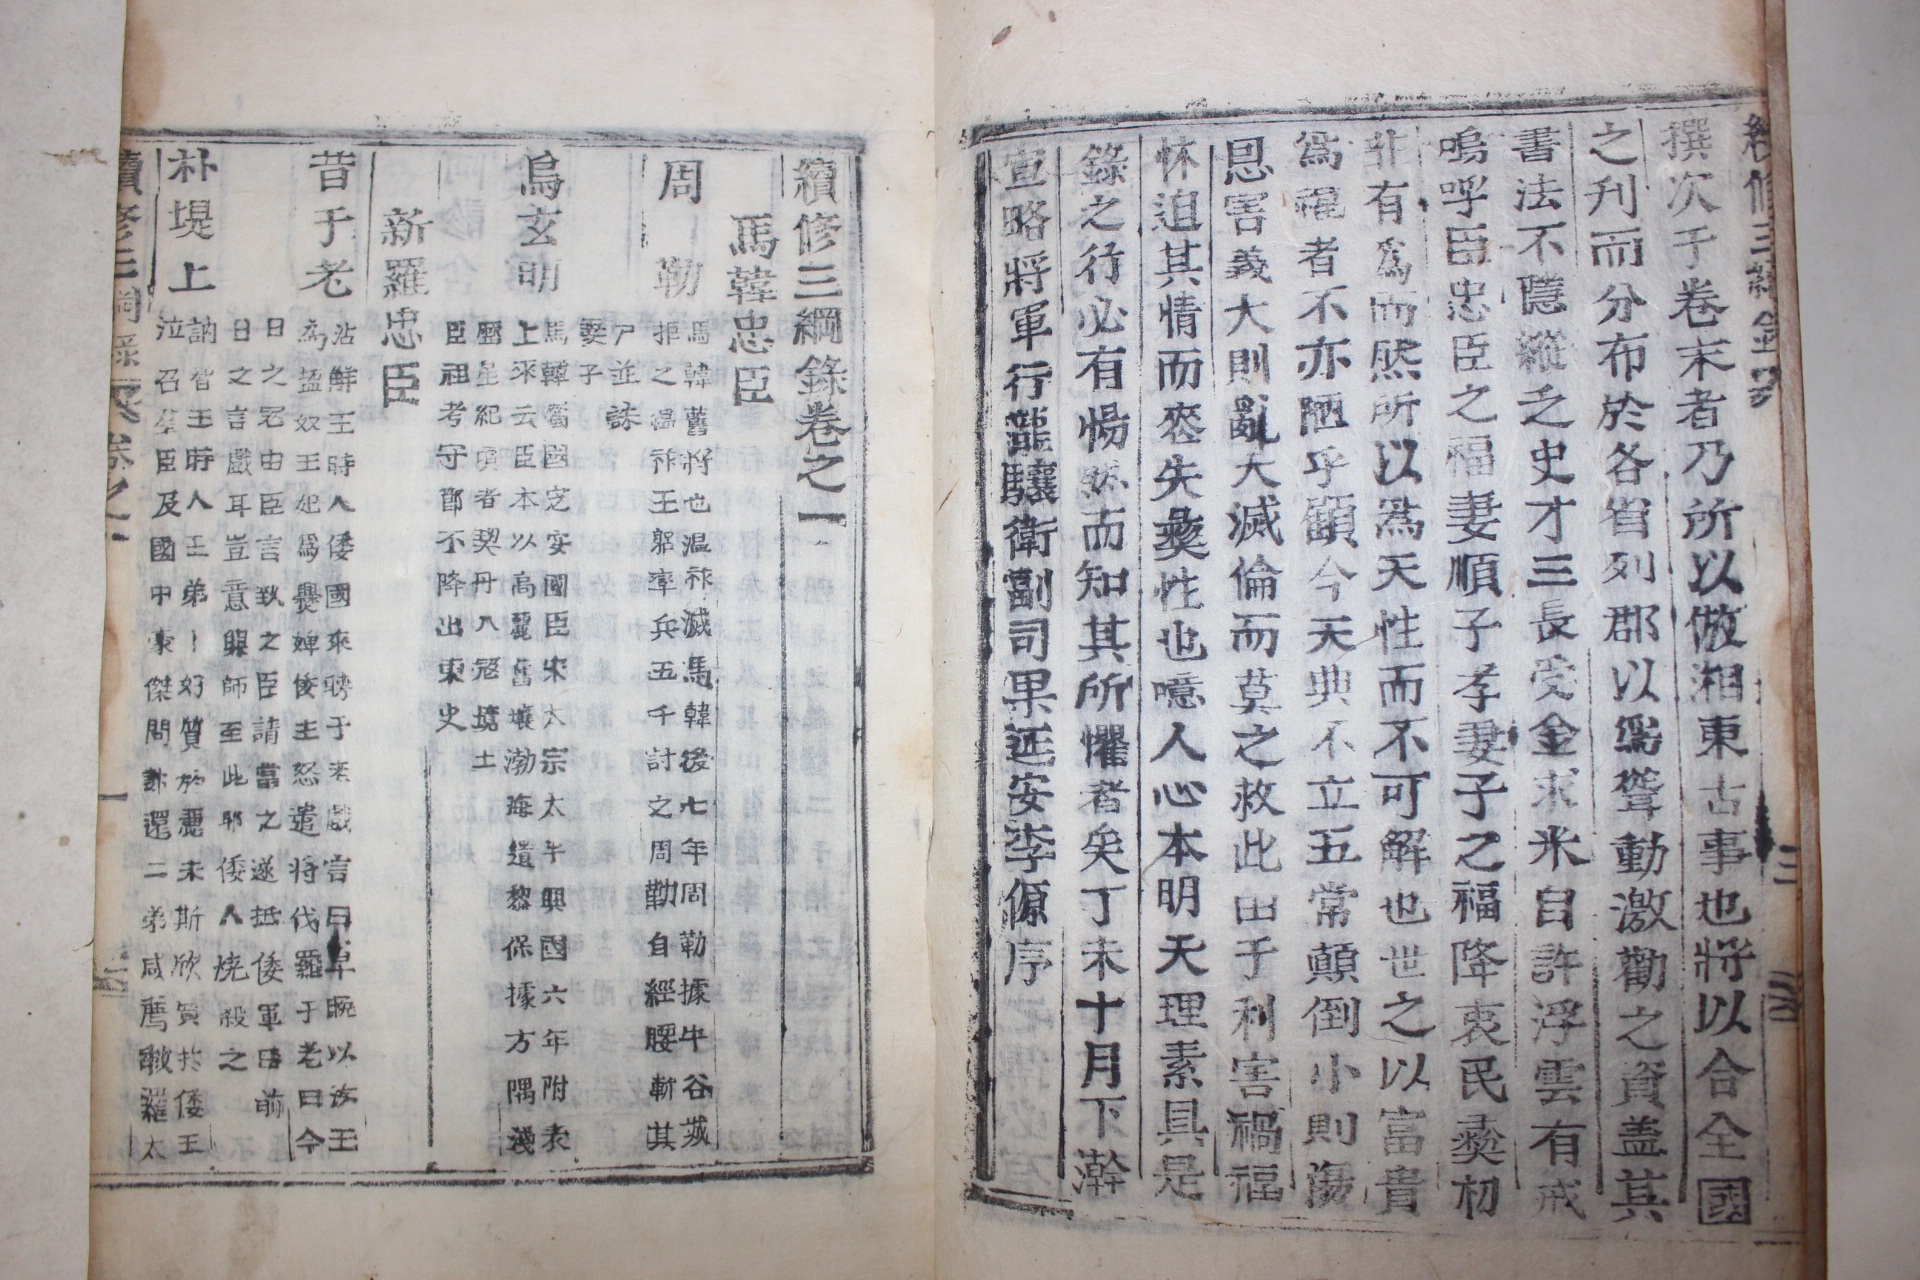 撰次于卷末者乃所以倣湘東古事也將以合全國
之刋而分布於各省列郡以爲聳動激勸之資盖其
書法不隱縱乏史才三長受金求米自許浮雲有戒
嗚呼臣忠臣之福妻順子孝妻子之福降衷民彛初
非有爲而然所以爲天性而不可解也世之以富貴
爲福者不亦陋乎顧今天典不立五常顚倒小則傷
恩害義大則亂大滅倫而莫之救此由于利害禍福
怵迫其情而喪失彛性也噫人心本明天理素具是
錄之行必有惕然而知其所懼者矣丁未十月下澣
宣略將軍行龍驤衛副司果延安李㒜序
續修三綱錄卷之一
馬韓忠臣
周勒
馬韓舊將也温祚滅馬韓後七年周勒據牛谷城
拒之温祚王躬率兵五千討之周勤自經腰斬其
尸並誅
妻子
烏玄明
馬韓屬國定安國臣宋太宗太平興國六年附表
上宋云臣本以高麗舊壤渤海遺黎保據方隅淺
歷星紀頃者契丹入冦境土
臣祖考守節不降出東史
新羅忠臣
昔于老
沾解王時人倭國來聘于老戱言曰早晩以汝王
爲鹽奴王妃爲爨婢倭主怒遣將伐羅于老曰今
日之冦由臣言致之臣請當之遂抵倭軍曰前
日之言戱耳豈意興師至此耶倭人燒殺之
朴堤上
訥智王時人王弟卜好質於麗未斯欣質於倭王
泣召羣臣及國中豪傑問計還二弟咸薦歃羅太
續修三綱錄 卷之一